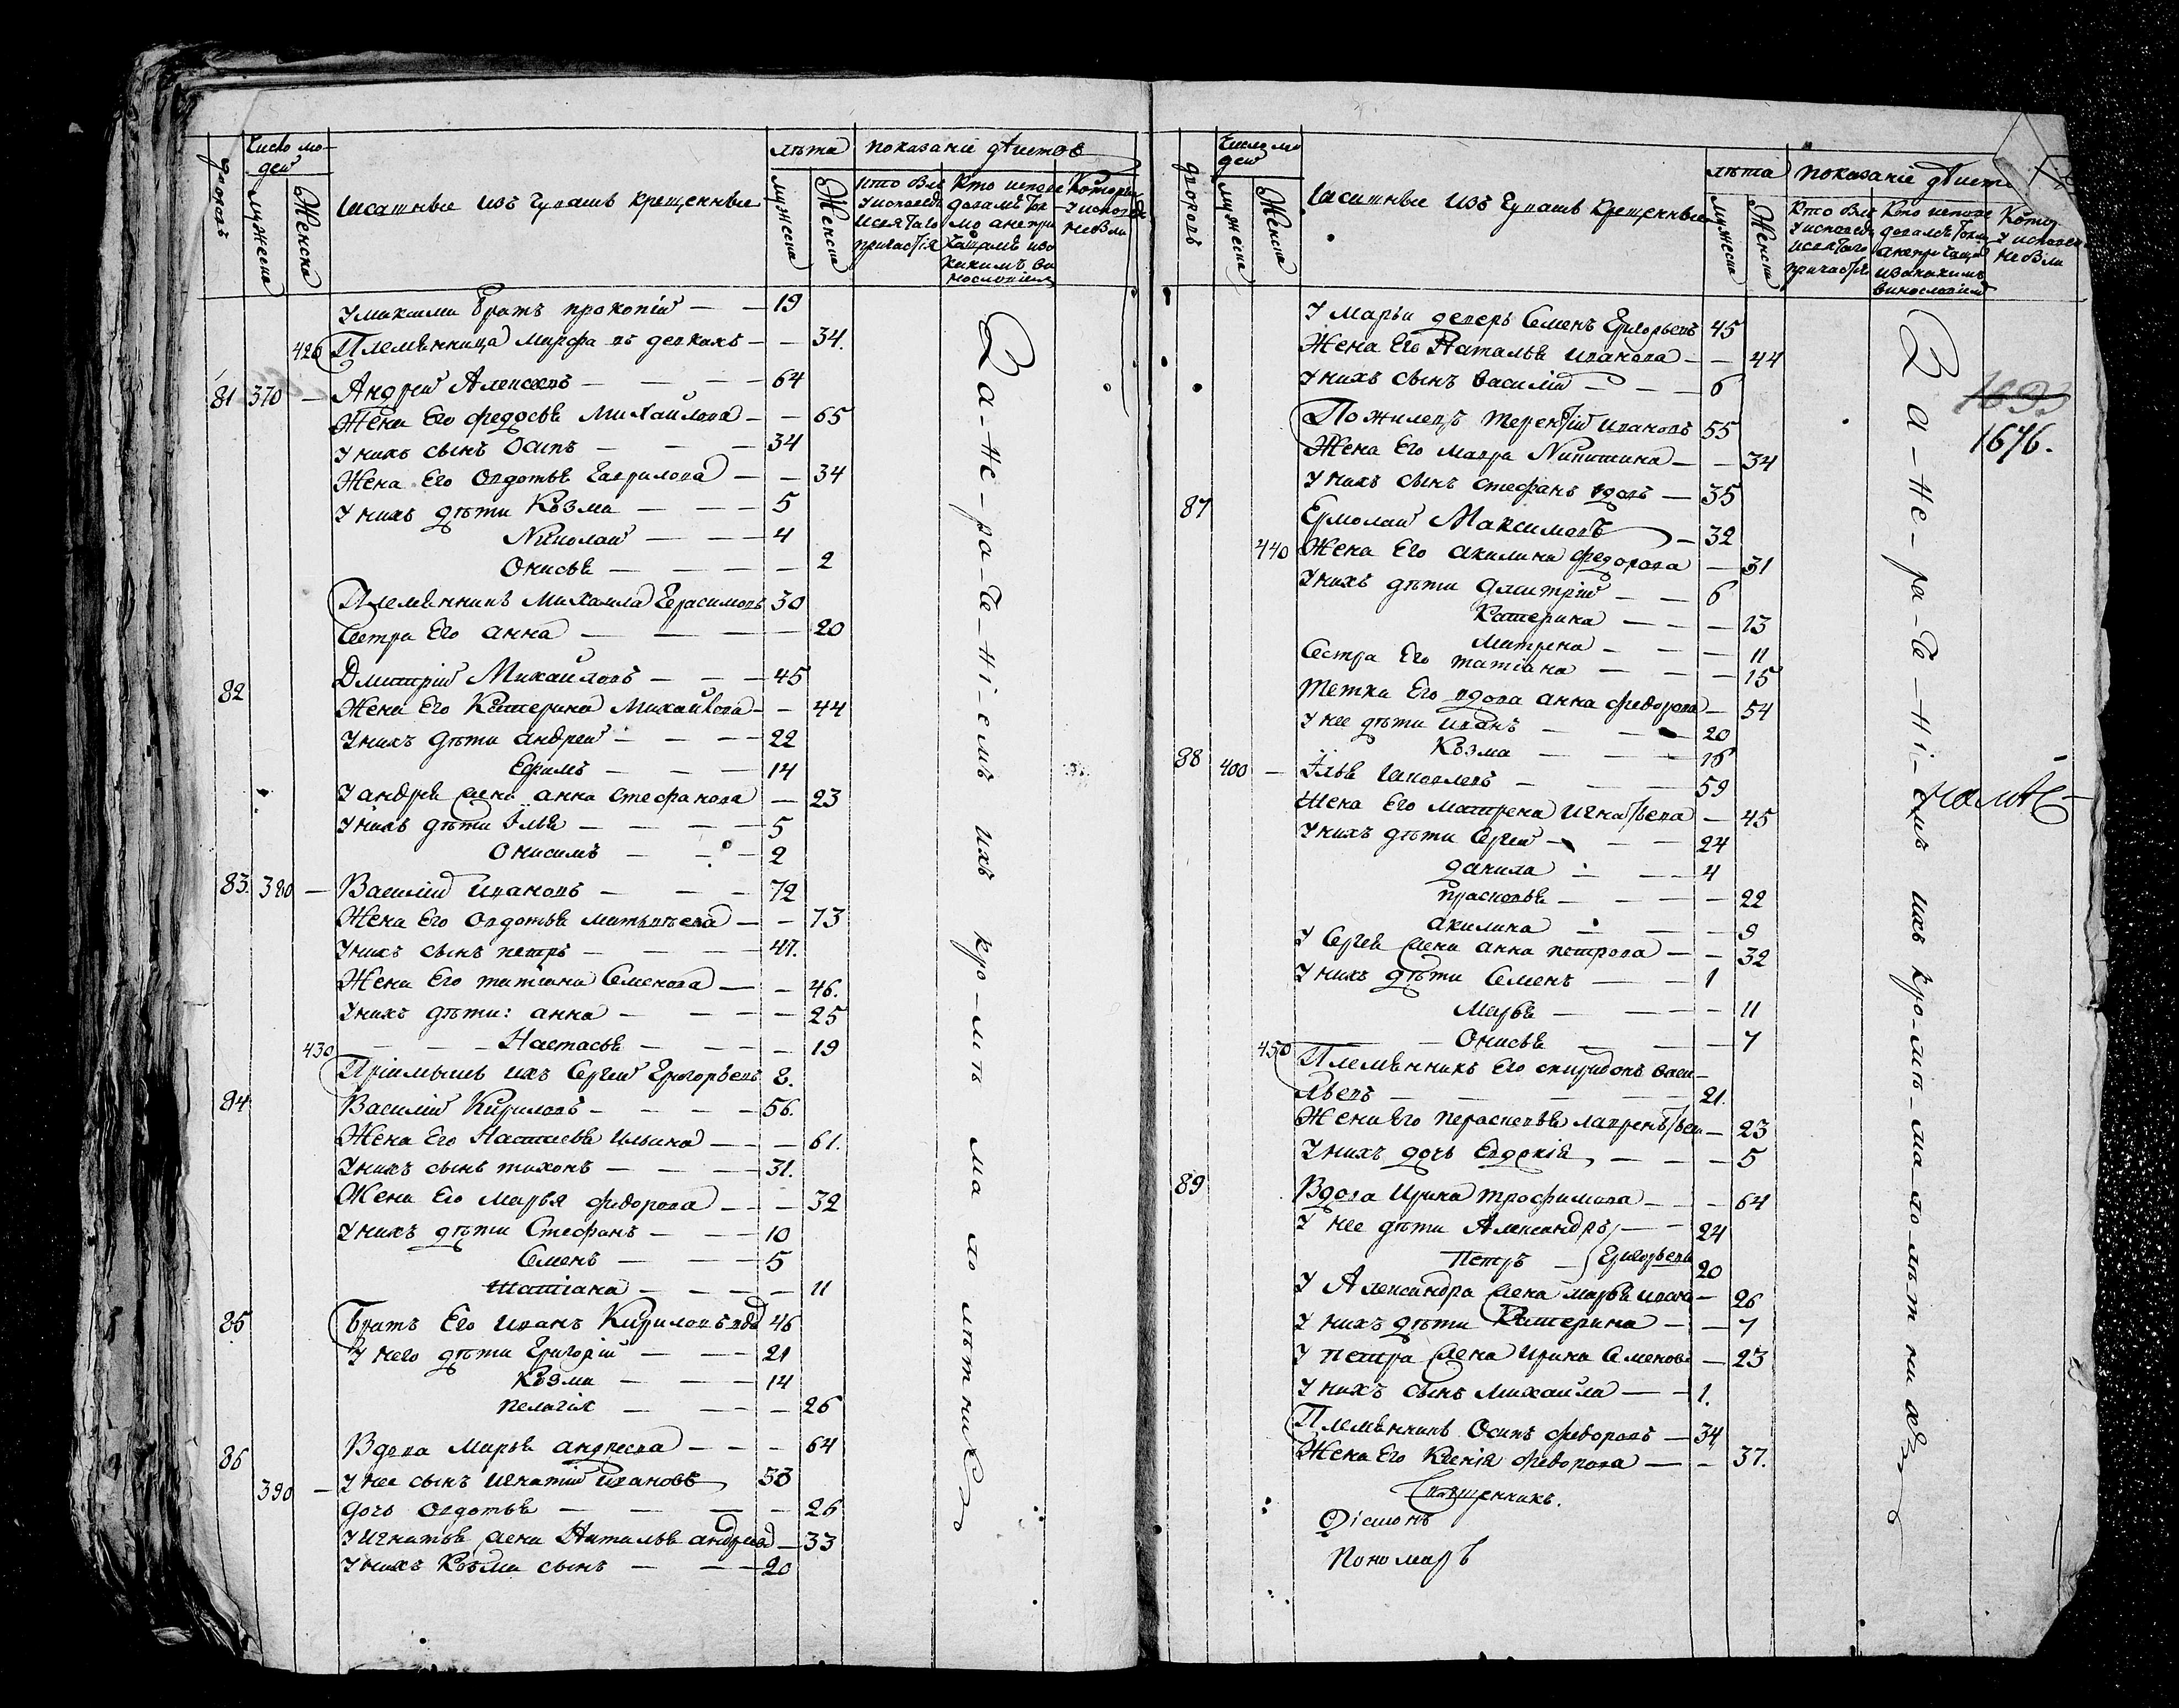 дворовъ
Число лю-
дей
мужеска
Женска
Ясашные изъ Чувашъ крещенные
лѣта
мужеска
Женска
показаніе дѣиствъ
У максима братъ прокопій — — 19
426 Племянница марфа въ девкахъ — — 34.
81 370 — Андрей Алексеевъ — — — 64
Жена Его федосья Михаилова — — 65
У нихъ сынъ Осипъ — — — 34
Жена Его Овдотья Гаврилова — — 34
У нихъ дѣти Козма — — — 5
Николай — — — 4
Онисья — — — — 2
Племянникъ Михаила Герасимовъ 30
Сестра Его анна — — — — 20
82 Дмитрій Михайловъ — — — 45
Жена Его Катерина Михайлова — — 44
У нихъ дѣти андрей — — — 22
Ефимъ — — — 14
У андрея жена анна Стефанова — 23
У нихъ дѣти Илья — — — — 5
Онисимъ — — — 2
83. 380 — Василій Ивановъ — — — 72
Жена Его Овдотья матвѣева — — 73
У нихъ сынъ петръ — — — 47.
Жена Его татіана Семенова — — 46.
У нихъ дѣти: анна — — — — 25
430 — — — Настасья — — — — 19
Пріимышъ ихъ Сергей Григорьевъ 8.
84 Василій Кириловъ — — — — 56.
Жена Его Настасья Ильина — — — 61.
У нихъ сынъ тихонъ — — — 31.
Жена Его марья федорова — — — 32
У нихъ дѣти Стефанъ — — — 10
Семенъ — — — 5
татіана — — — — 11
85 Братъ Его Иванъ Кириловъ вдовъ 46
У него дѣти Григорій — — — 21
Козма — — — 14
пелагія — — — — 26
86 Вдова марья андреева — — — 64
У нее сынъ Игнатій Ивановъ 53
390 — дочь Овдотья — — — — 26
У Игнатья жена Наталья андреева — 33
У нихъ Козма сынъ — — — 20
За-не-ра-че-ні-емъ ихъ кро-мѣ ма ло лѣт нихъ
дворовъ
Число лю
дей
мужеска
Женска
Ясашные изъ Чувашъ крещенные
лѣта
мужеска
Женска
показаніе дѣист
1693
1676.
У марьи деверь Семенъ Григорьевъ 45
Жена Его Наталья иванова — — 44
У нихъ сынъ василій — — — 6
Пожилецъ терентій ивановъ 55
Жена Его мавра Никитина — — 34
У нихъ сынъ стефанъ вдовъ — 35
87 Ермолай Максимовъ — 32
440 Жена Его акилина федорова — 31
У нихъ дѣти дмитрій — — 6
Катерина — — — 13
матрена — — — 11
Сестра Его татіана — — — 15
тетка Его вдова анна федорова — 54
У нее дѣти иванъ — — — 20
Козма — — — 16
88 400 — Илья Яковлевъ — — — 59
Жена Его матрена игнатьева — 45
У нихъ дѣти Сергей — — — 24
данила — — — 4
прасковья — — — — 22
акилина — — — 9
У Сергея жена анна петрова — — 32
У нихъ дѣти Семенъ — — 1
марья — — — — 11
Онисья — — — 7
450 Племянникъ Его спиридонъ васи-
льевъ — — — — 21.
Жена Его параскевья лаврентьева — 23
У нихъ дочь Евдокія — — — 5
89 Вдова Ирина трофимова — — — 64
У нее дѣти Александръ — — 24
Петръ — Григорьевы 20
У Александра жена марья ивано — 26
У нихъ дѣти Катерина — — — 7
У петра жена Ирина Семенова — 23
У нихъ сынъ михаила — — 1.
Племянникъ Осипъ федоровъ — 34
Жена Его Ксенія федорова — — 37.
Священникъ.
Діаконъ
Пономарь
За-не-ра-че-ні-емъ ихъ кро-мѣ-ма ло лѣт ни хъ